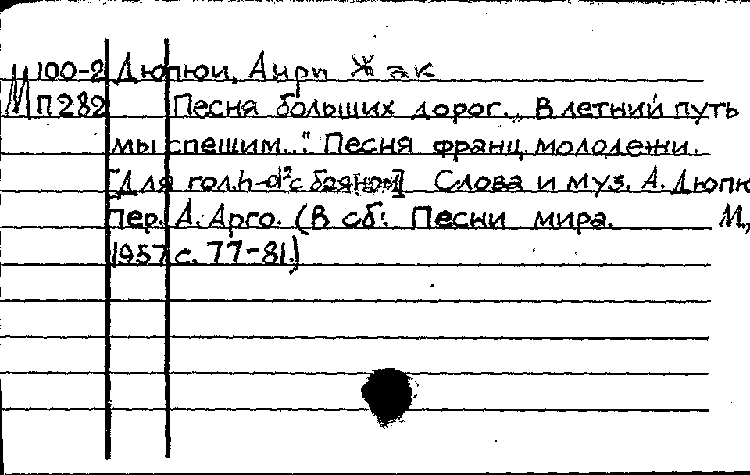 М 100-2 Дюпюи, Анри Жак
П282 Песня больших дорог. „В летний путь
мы спешим..." Песня франц. молодежи.
[Для гол. h-d² с баяном] Слова и муз. А. Дюпю
Пер. А. Арго. (В сб: Песни мира. М.,
1957 с. 77-81.)